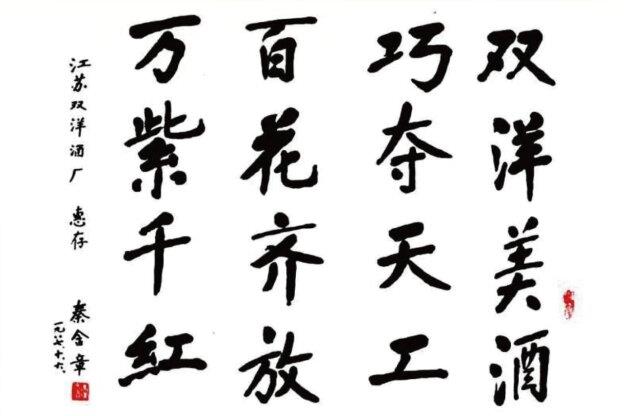 双洋美酒
巧夺天工
百花齐放
万紫千紅
江苏双洋酒厂 惠存
秦含章
一九八七.十.六.